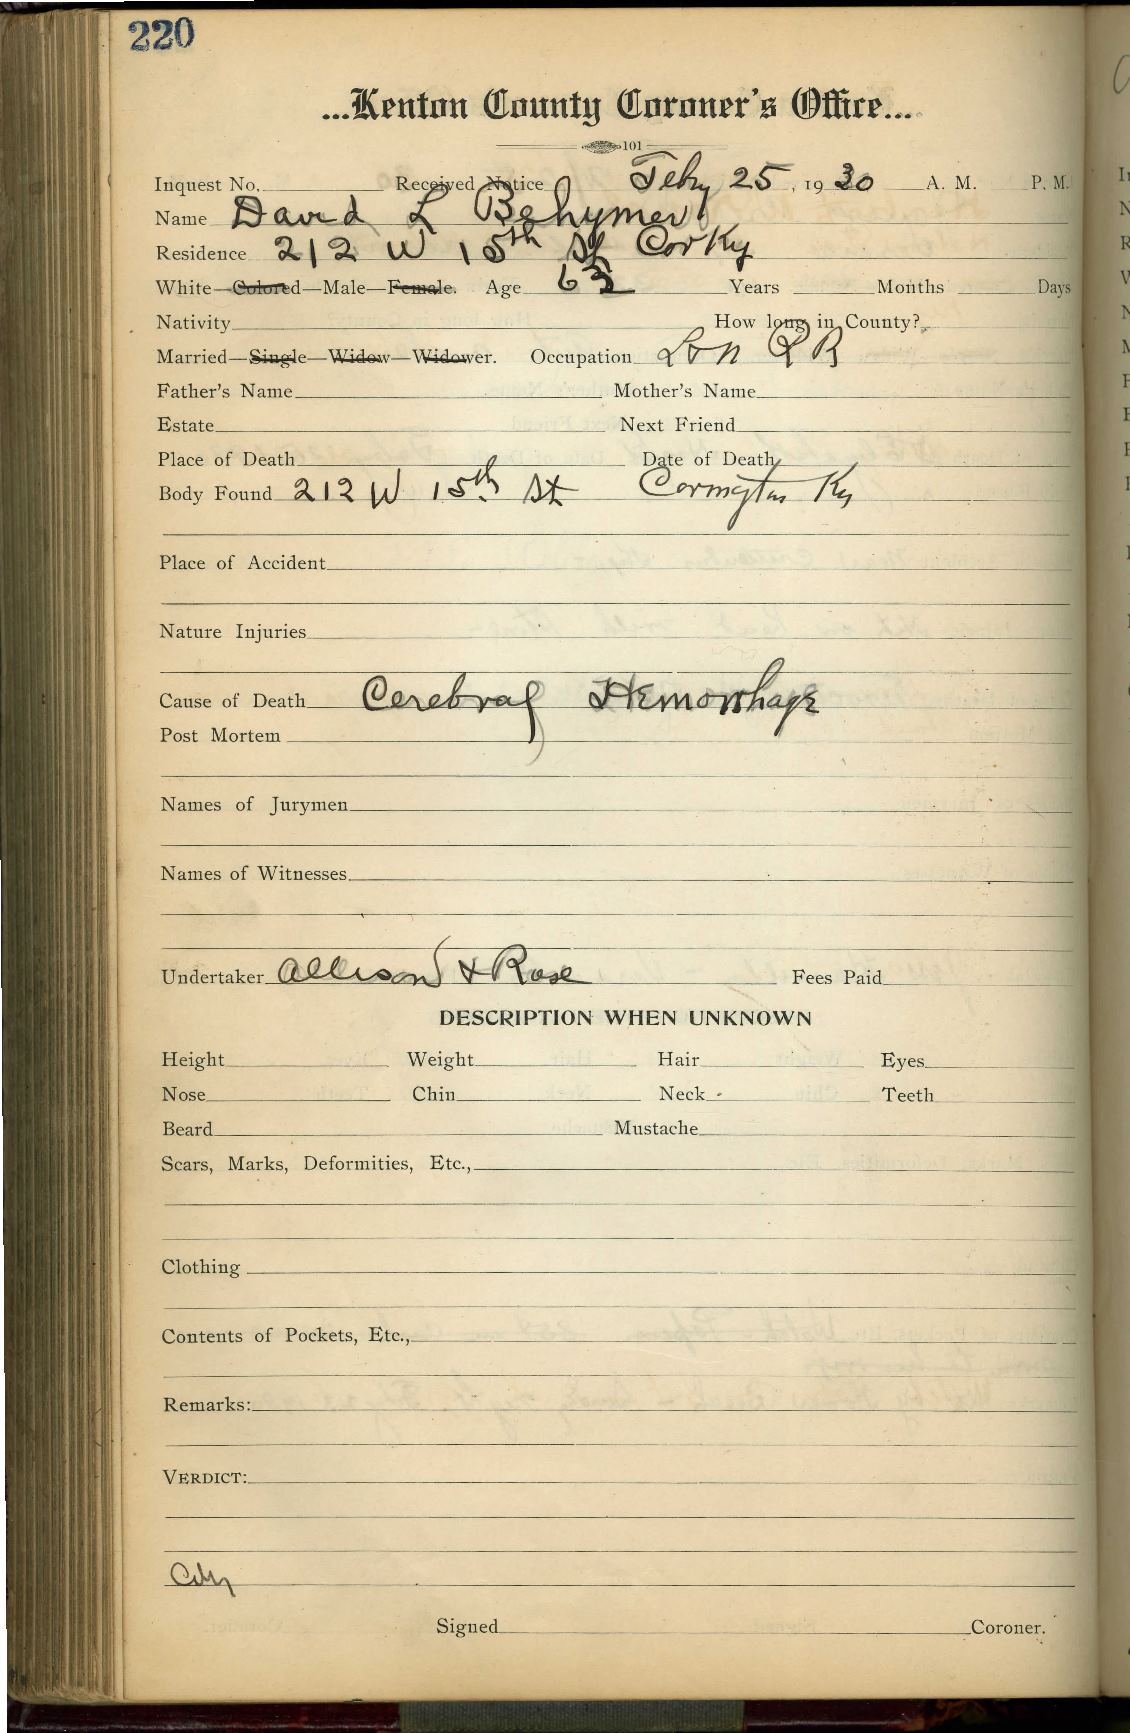 220
...Kenton County Coroner's Office...
101
Inquest No. Received Notice Feby 25, 1930 A. M. P. M.
Name David L Behymer
Residence 212 W 15th St Cov Ky
White—Colored—Male—Female. Age 63 Years Months Days
Nativity How long in County?
Married—Single—Widow—Widower. Occupation L & N R R
Father's Name Mother's Name
Estate Next Friend
Place of Death Date of Death
Body Found 212 W 15th St Covington Ky
Place of Accident
Nature Injuries
Cause of Death Cerebral Hemorrhage
Post Mortem
Names of Jurymen
Names of Witnesses
Undertaker Allison & Rose Fees Paid
DESCRIPTION WHEN UNKNOWN
Height Weight Hair Eyes
Nose Chin Neck Teeth
Beard Mustache
Scars, Marks, Deformities, Etc.,
Clothing
Contents of Pockets, Etc.,
Remarks:
VERDICT:
City
Signed Coroner.